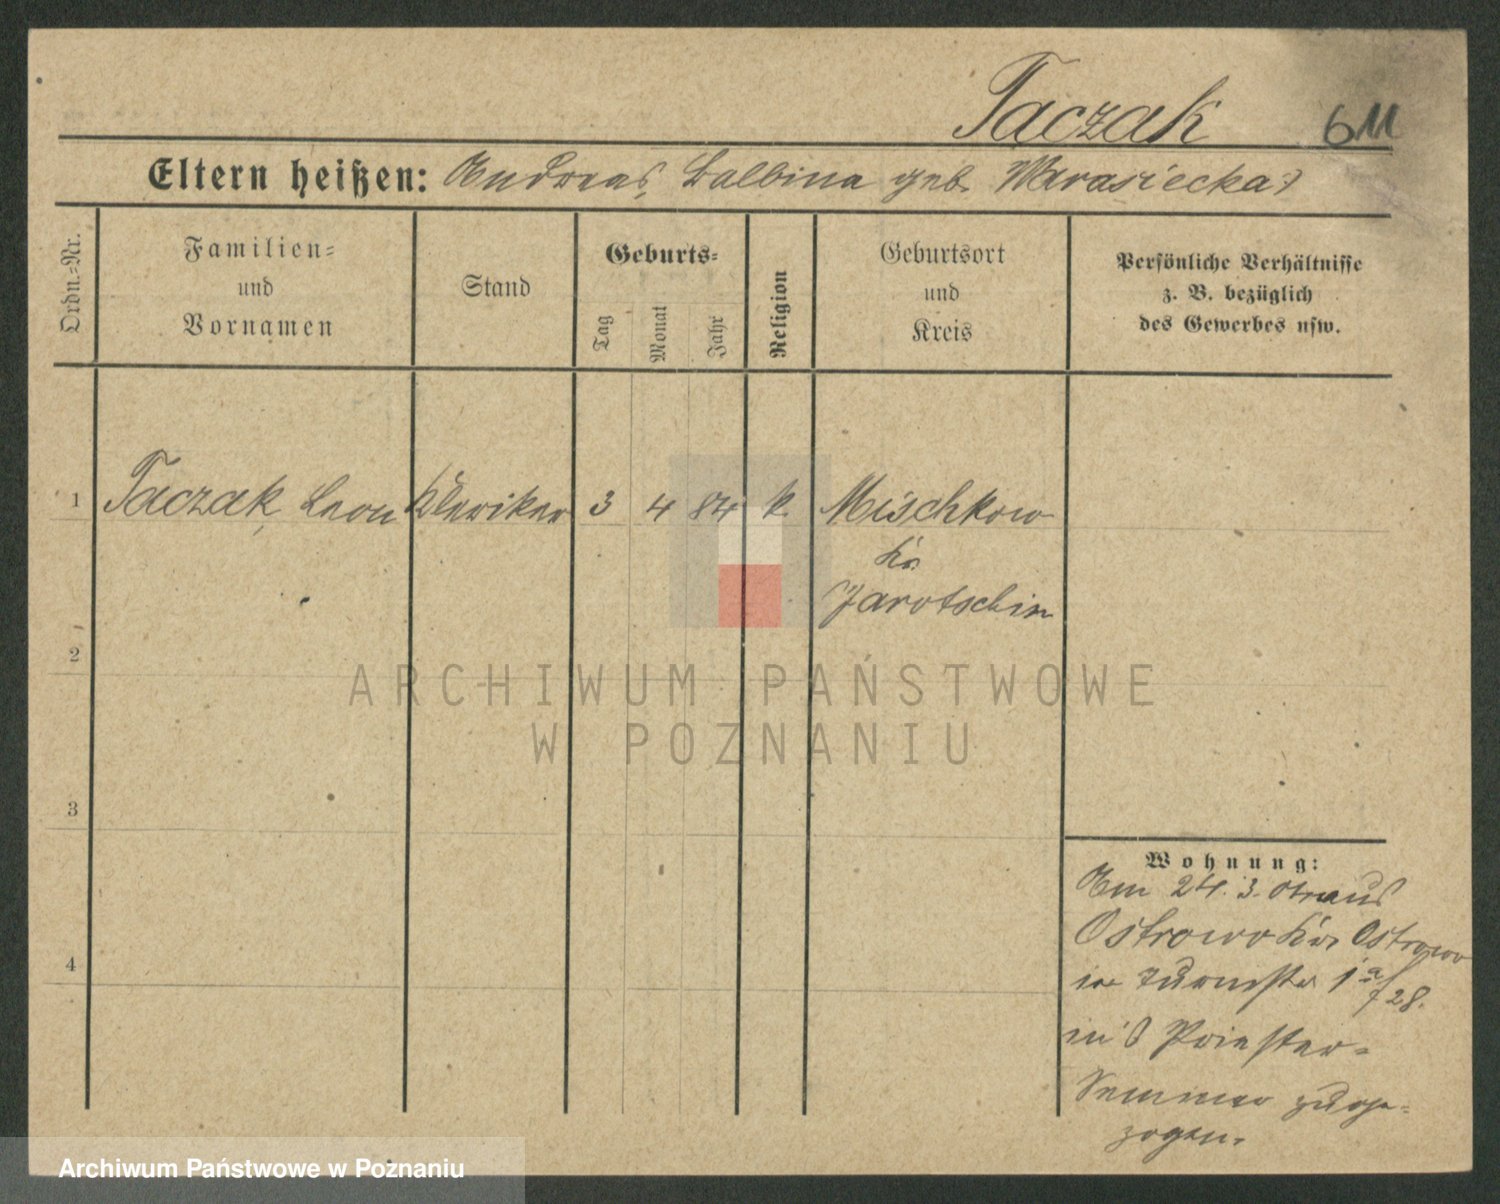 Taczak 611
Eltern heißen: Andreas, Balbina geb. Warasiecka
Ordn.-Nr.
Familien-
und
Vornamen
Stand
Geburts-
Tag
Monat
Jahr
Religion
Geburtsort
und
Kreis
Persönliche Verhältnisse
z. B. bezüglich
des Gewerbes usw.
1 Taczak, Leon Kleriker 3 4 84 k. Mischkow
Kr.
Jarotschin
2
3
4
Wohnung:
Am 24. 3. aus
Ostrowo Kr. Ostrowo
in 1a/28.
in's Priester-
Seminar zuge-
zogen.
ARCHIWUM PAŃSTWOWE
W POZNANIU
Archiwum Państwowe w Poznaniu